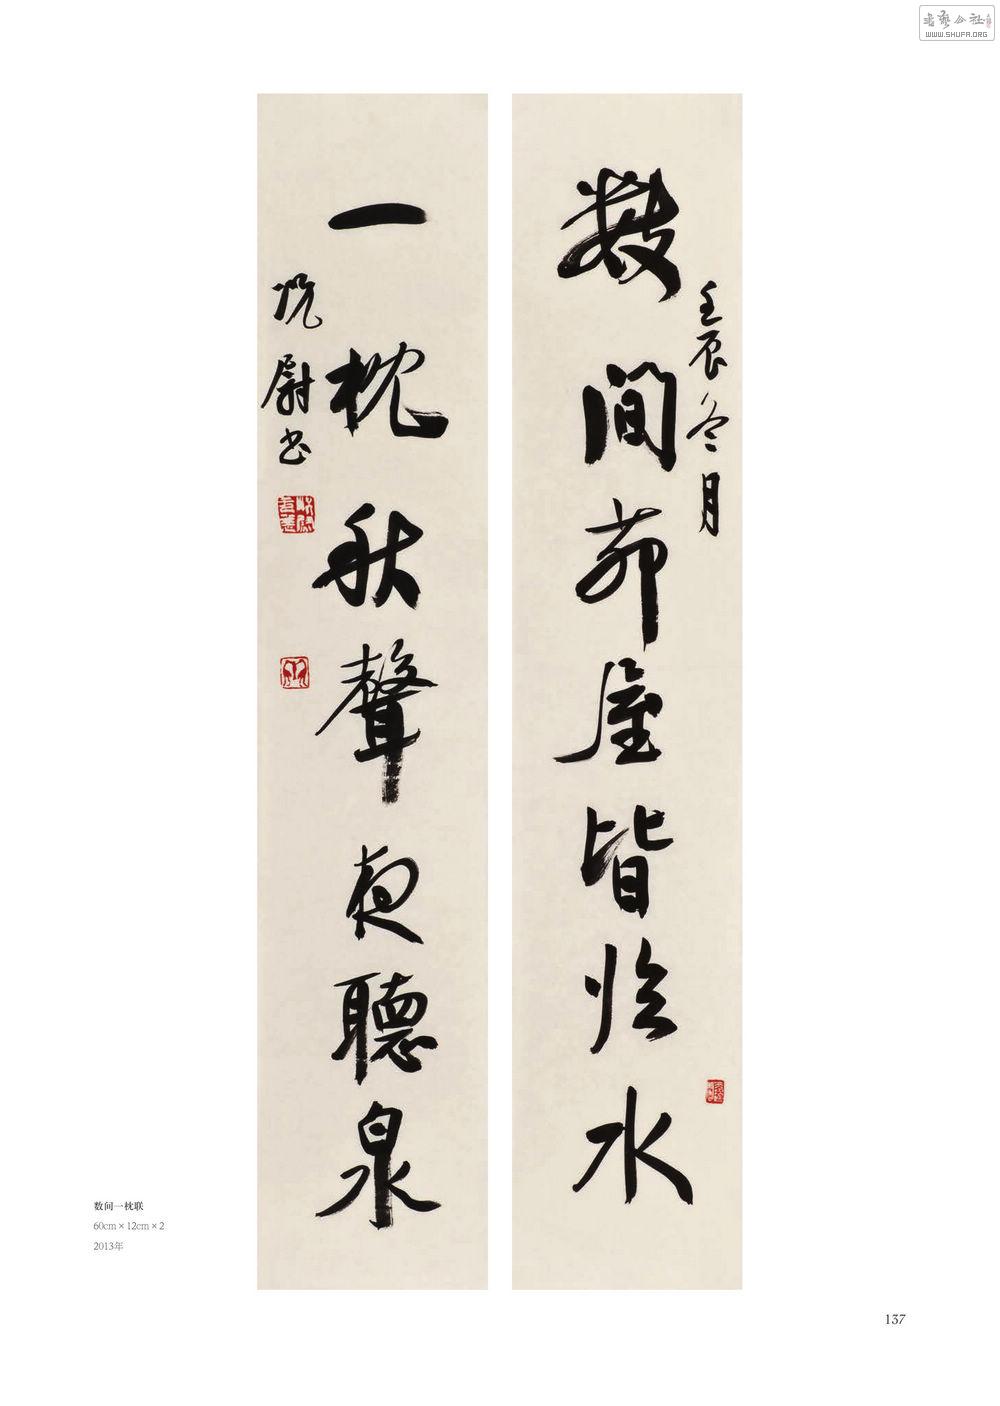 書藝公社
WWW.SHUFA.ORG
數間茆屋皆臨水
壬辰冬月
一枕秋聲夜聽泉
尉书
数间一枕联
60cm×12cm×2
2013年
137